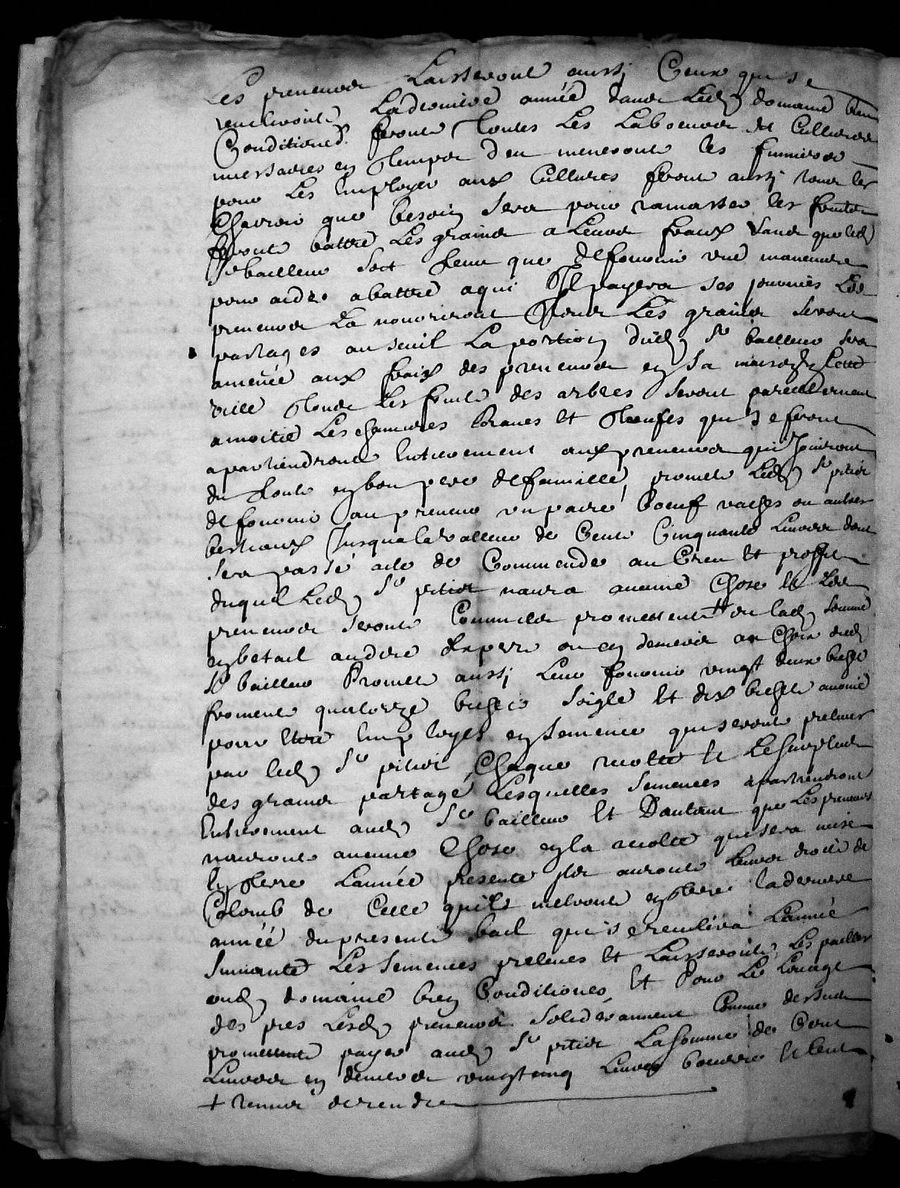 Les preneurs Laisseront aussi Ceux qui se
recuilliront La derniere année dans Led domaine bien
Conditionés feront Toutes Les Laboeurs et Cultures
necessaires en Temps deu meneront les fumiers
pour Les Employer aux Cultures feront aussi tous les
Charois que besoin sera pour ramasser les fruits
feront battre Les grains a Leurs fraix sans que led
Sr bailleur soit Tenu que de fournir une maneuvre
pour aider a battre a qui Il payera ses journées Les
preneurs La nourriront Tous Les grains seront
partagés au seuil La portion dud Sr bailleur sera
amenée aux fraix des preneurs en sa maison en cette
ville Tous Les fruits des arbres seront pareillement
a moitié Les chanvres Raves et Treufles qui se feront
apartiendront Entierement aux preneurs qui Jouiront
du Tout en bon pere de famille, promet Led Sr pitiot
de fournir au preneurs un paire Boeuf vaches ou autres
bestiaux Jusqua la valleur de Cents Cinquante Livres dont
sera passé acte de Commende au Creu et proffit
duquel Led Sr pitiot naura aucune Chose et Les
preneurs seront promettent + lad somme
en betail au dire dexpers ou en deniers au Choix dud
Sr bailleur Promet aussi Leur fournir vingt deux bichets
froment quatorze bichets soigle et dix bichets avoine
pour Etre Employés en semence qui seront prelevés
par led Sr pitiot, Chaque recolte et Le surplus
des grains partagé Lesquelles semences apartiendront
Entierement aud Sr bailleur Et Dautant que Les preneurs
nauront aucune Chose en la recolte qui sera mise
En Terre Lannée presente Ils auront Leurs droits de
Colomb de Celle quils metront en terre la derniere
année du present bail qui se recullira Lannée
suivante Les semences prelevés Et Laisseront Les pailles
aud domaine bien Conditionés, Et Pour Le Louage
des pres Lesd preneurs solidérament Comme dessus
promettent payer aud Sr pitiot La somme de Cent
Livres en deniers vingt cinq Livres beurre et Cent
+ renmer de rendre